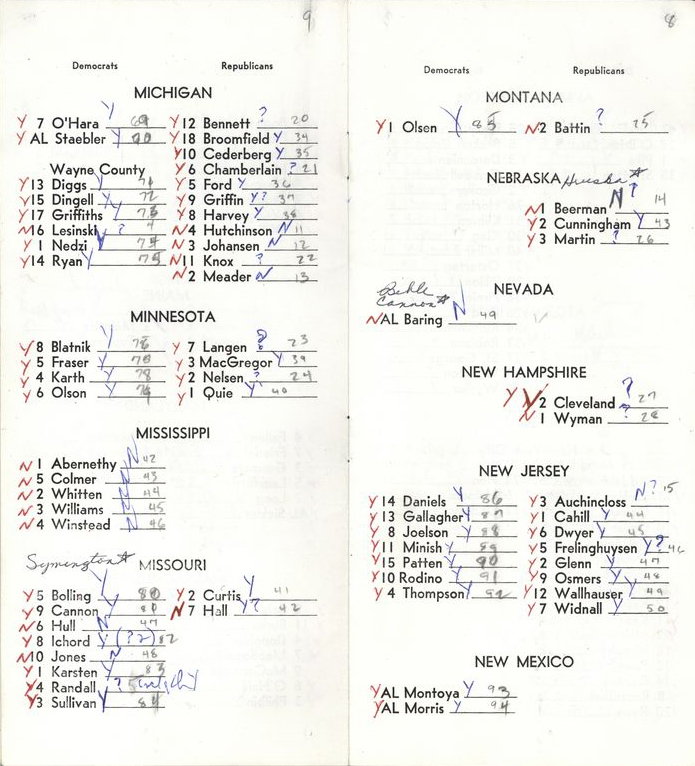 9
Democrats Republicans
MICHIGAN
Y
Y 7 O'Hara 69 Y 12 Bennett ? 20
Y AL Staebler Y 70 Y 18 Broomfield Y 34
Y 10 Cederberg Y 35
Wayne County Y 6 Chamberlain ? 21
Y 13 Diggs Y 71 Y 5 Ford Y 36
Y 15 Dingell Y 72 Y 9 Griffin Y? 37
Y 17 Griffiths Y 73 Y 8 Harvey Y 38
N 16 Lesinski ? 9 N 4 Hutchinson N 11
Y 1 Nedzi Y 74 N 3 Johansen N 12
Y 14 Ryan Y 75 N 11 Knox ? 22
N 2 Meader N 13
MINNESOTA
Y 8 Blatnik Y 76 Y 7 Langen ? 23
Y 5 Fraser Y Y 3 MacGregor Y 39
Y 4 Karth Y 78 Y 2 Nelsen ? 24
Y 6 Olson Y Y 1 Quie Y 40
MISSISSIPPI
N 1 Abernethy N 42
N 5 Colmer N 43
N 2 Whitten N 44
N 3 Williams N 45
N 4 Winstead N 46
Symington MISSOURI
Y 5 Bolling Y 80 Y 2 Curtis Y 41
Y 9 Cannon Y 81 N 7 Hall Y? 42
N 6 Hull N 47
Y 8 Ichord Y (? 2) 82
N 10 Jones N 48
Y 1 Karsten Y 83
Y 4 Randall ? 5
Y 3 Sullivan Y 84
8
Democrats Republicans
MONTANA
Y 1 Olsen Y 85 N 2 Battin ? 25
NEBRASKA Hruska
N 1 Beerman N ? 14
Y 2 Cunningham Y 43
Y 3 Martin ? 26
Bible
Cannon
NEVADA
N AL Baring N 49
NEW HAMPSHIRE
Y Y 2 Cleveland ? 27
N 1 Wyman ? 28
NEW JERSEY
Y 14 Daniels Y 86 Y 3 Auchincloss N? 15
Y 13 Gallagher Y 87 Y 1 Cahill Y 44
Y 8 Joelson Y 88 Y 6 Dwyer Y 45
Y 11 Minish Y 89 Y 5 Frelinghuysen Y? 46
Y 15 Patten Y 90 Y 2 Glenn Y 47
Y 10 Rodino Y 91 Y 9 Osmers Y 48
Y 4 Thompson Y 92 Y 12 Wallhauser Y 49
Y 7 Widnall Y 50
NEW MEXICO
Y AL Montoya Y 93
Y AL Morris Y 94